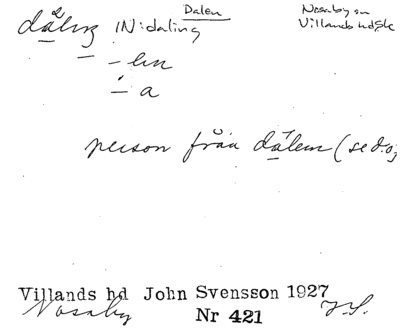 Dalen
Nosaby sn
Villands hd Sk
dåling IN: daling
- en
- a
person från dålen (se d.o.)
Villands hd John Svensson 1927
Nosaby Nr 421 J.S.